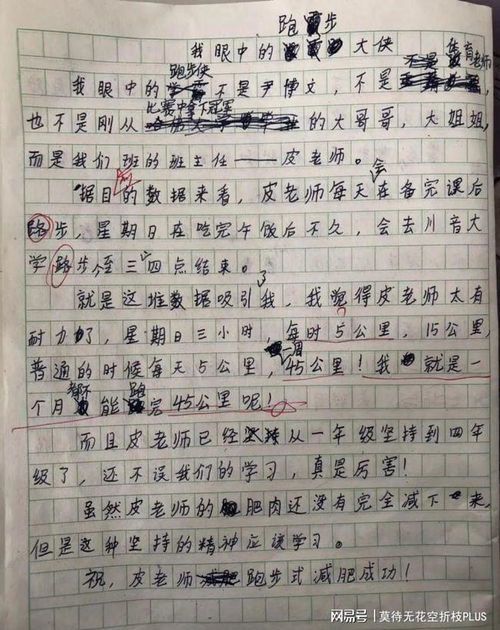 跑步
我眼中的大侠
我眼中的跑步侠不是尹博文,不是体育老师,
也不是刚从比赛中拿下冠军的大哥哥,大姐姐,
而是我们班的班主任——皮老师。
据目前的数据来看,皮老师每天会在备完课后
跑步,星期日在吃完午饭后不久,会去川音大
学跑步至三、四点结束。
就是这堆数据吸引了我,我觉得皮老师太有
耐力了,星期日三小时,每时5公里,15公里,
普通的时候每天5公里,一周45公里!我就是一
个月都不能跑完45公里呢!
而且皮老师已经从一年级坚持到四年
级了,还不误我们的学习,真是厉害!
虽然皮老师的肥肉还没有完全减下来,
但是这种坚持的精神应该学习。
祝,皮老师跑步式减肥成功!
网易号 | 莫待无花空折枝PLUS